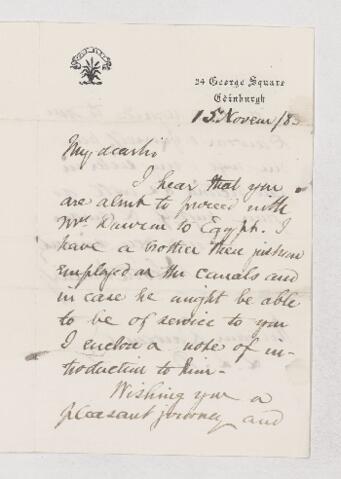 24 George Square
Edinburgh
15 Novem /8
My dear Sir
I hear that you
are about to proceed with
Mrs. Darwin to Egypt. I
have a brother there just now
employed on the canals and
in case he might be able
to be of service to you
I enclose a note of in-
troduction to him -
Wishing you a
pleasant journey and